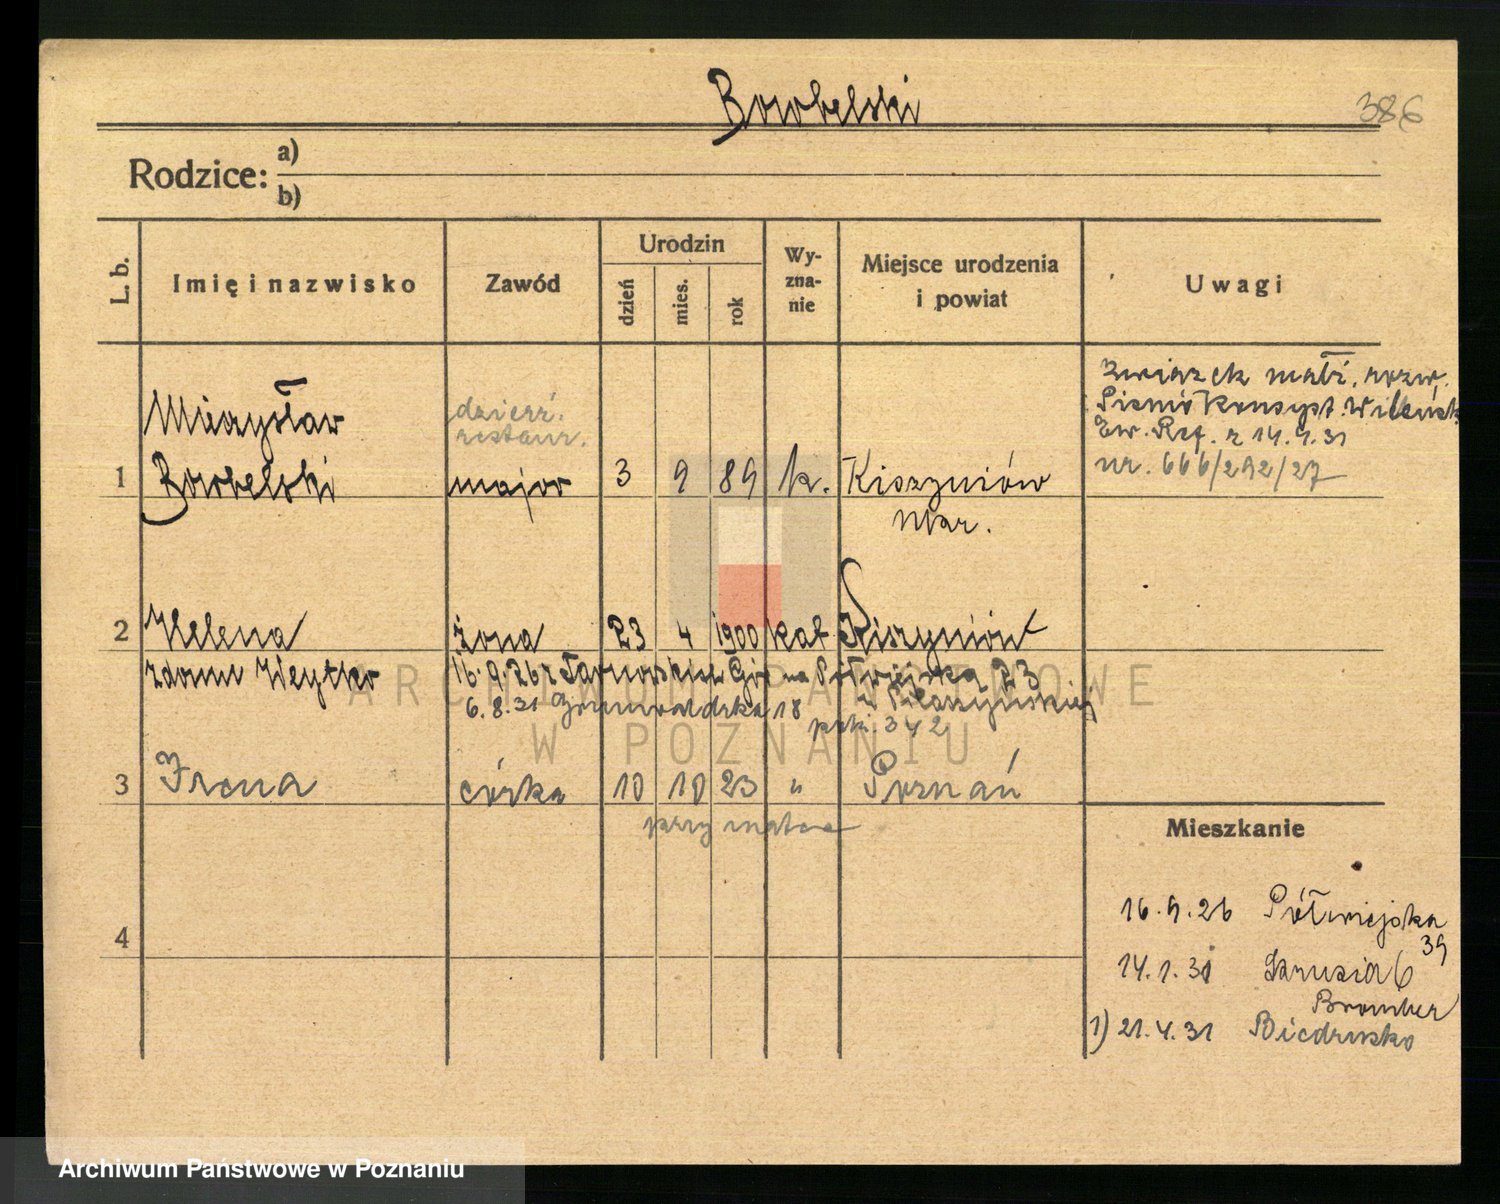 Bowbelski
386
Rodzice: a)
b)
L. b.
Imię i nazwisko
Zawód
Urodzin
dzień
mies.
rok
Wy-
zna-
nie
Miejsce urodzenia
i powiat
Uwagi
Związek małż. rozw.
Pismo Konsyst. Wileńsk.
Ew. Ref. z 14.9.31
nr. 666/292/27
Mieczysław
dzierż.
restaur.
1 Bowbelski major 3 9 89 k. Kiszyniów
2 Helena żona 23 4 1900 kat Kiszyniów
z domu Weytko
16.9.26 z Tarnowskich Gór na Półwiejską 23
6.8.31 Grunwaldzka 18
342
3 Irena córka 10 10 23 " Poznań
przy matce
4
Mieszkanie
16.9.26 Półwiejska
39
14.1.31
1) 21.4.31 Biedrusko
ARCHIWUM PAŃSTWOWE
W POZNANIU
Archiwum Państwowe w Poznaniu